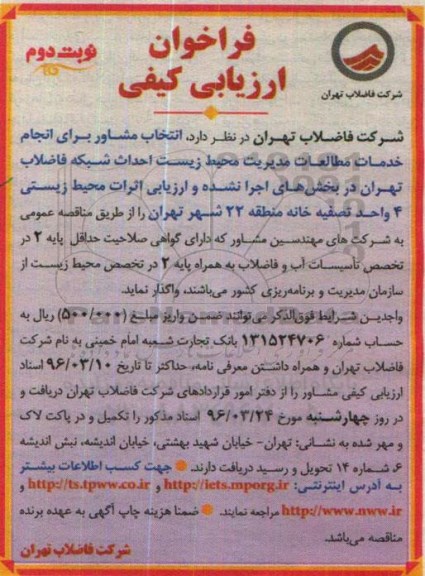 فراخوان
ارزیابی کیفی
نوبت دوم
شرکت فاضلاب تهران
شرکت فاضلاب تهران در نظر دارد، انتخاب مشاور برای انجام
خدمات مطالعات مدیریت محیط زیست احداث شبکه فاضلاب
تهران در بخش‌های اجرا نشده و ارزیابی اثرات محیط زیستی
۴ واحد تصفیه خانه منطقه ۲۲ شهر تهران را از طریق مناقصه عمومی
به شرکت های مهندسین مشاور که دارای گواهی صلاحیت حداقل پایه ۲ در
تخصص تأسیسات آب و فاضلاب به همراه پایه ۲ در تخصص محیط زیست از
سازمان مدیریت و برنامه‌ریزی کشور می‌باشند، واگذار نماید.
واجدین شرایط فوق‌الذکر می‌توانند ضمن واریز مبلغ (۵۰۰/۰۰۰) ریال به
حساب شماره ۱۳۱۵۲۴۷۰۶ بانک تجارت شعبه امام خمینی به نام شرکت
فاضلاب تهران و همراه داشتن معرفی نامه، حداکثر تا تاریخ ۹۶/۰۳/۱۰ اسناد
ارزیابی کیفی مشاور را از دفتر امور قراردادهای شرکت فاضلاب تهران دریافت و
در روز چهارشنبه مورخ ۹۶/۰۳/۲۴ اسناد مذکور را تکمیل و در پاکت لاک
و مهر شده به نشانی: تهران- خیابان شهید بهشتی، خیابان اندیشه، نبش اندیشه
۶، شماره ۱۴ تحویل و رسید دریافت دارند. جهت کسب اطلاعات بیشتر
به آدرس اینترنتی: http://iets.mporg.ir و http://ts.tpww.co.ir و
http://www.nww.ir مراجعه نمایند. ضمناً هزینه چاپ آگهی به عهده برنده
مناقصه می‌باشد.
شرکت فاضلاب تهران